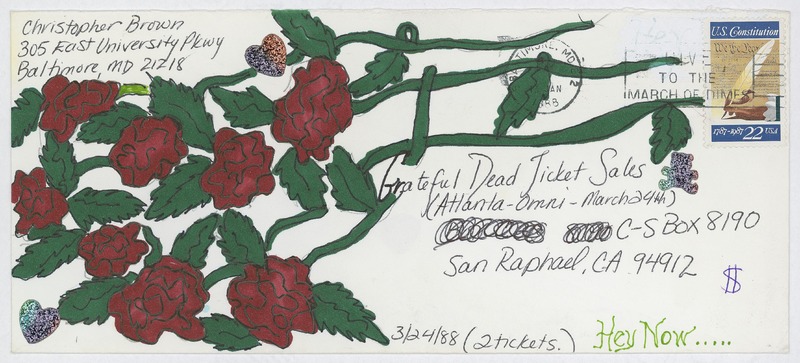 Christopher Brown
305 East University Pkwy
Baltimore, MD 21218
TIMORE, MD
AN
TO THE
MARCH OF DIMES
U.S. Constitution
We the People
1787-1987 22 USA
Grateful Dead Ticket Sales
(Atlanta-Omni-March 24th)
C-S Box 8190
San Raphael, CA 94912
$
3/24/88 (2 tickets.)
Hey Now.....